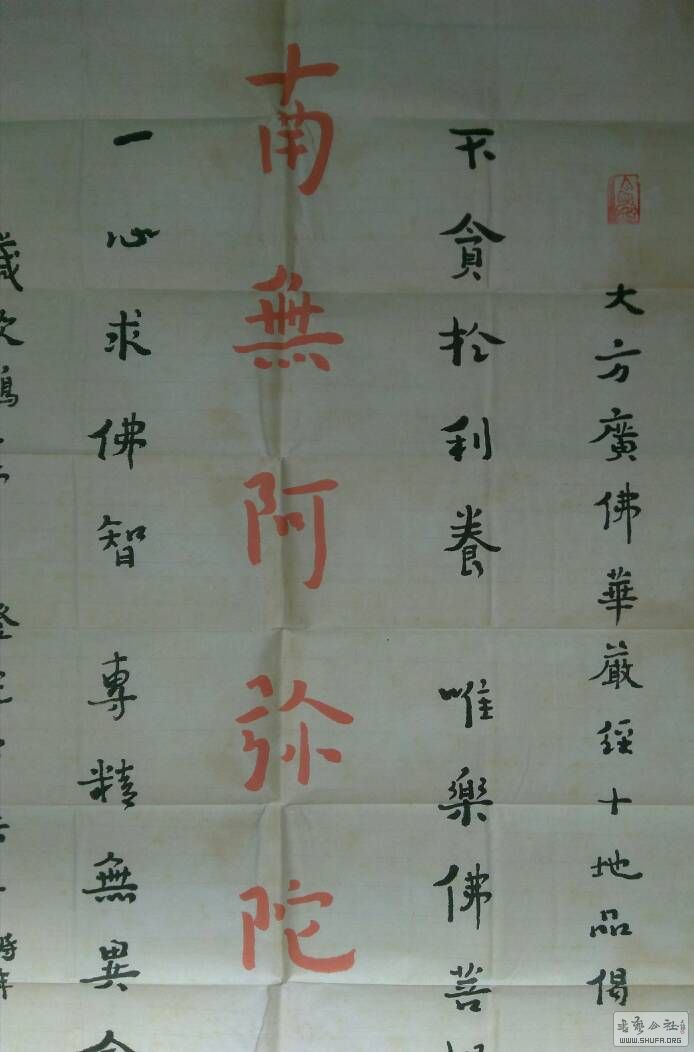 大方廣佛華嚴經十地品偈
不貪於利養 唯樂佛菩
南無阿弥陀
一心求佛智 專精無異念
歲次
書藝公社
WWW.SHUFA.ORG